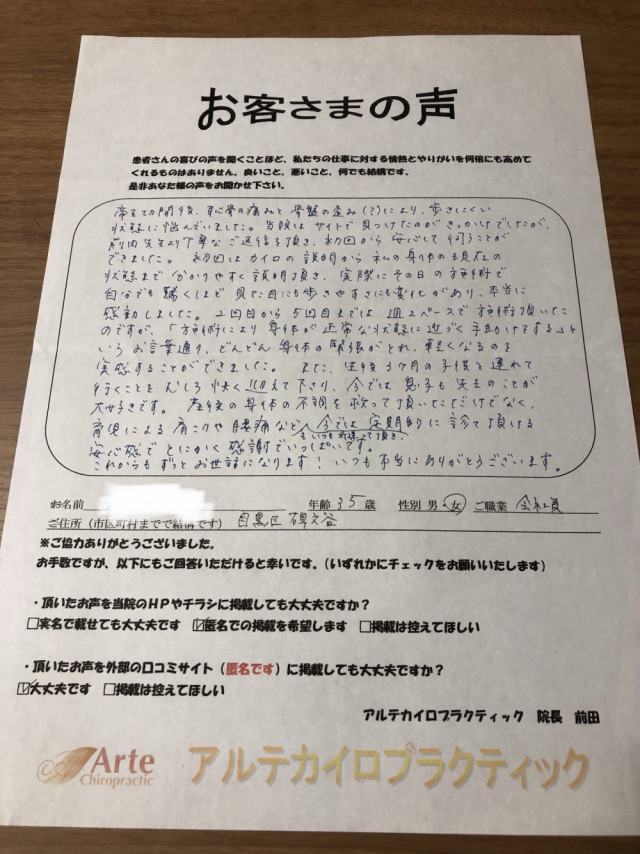 お客さまの声
患者さんの喜びの声を聞くことほど、私たちの仕事に対する情熱とやりがいを何倍にも高めて
くれるものはありません。良いこと、悪いこと、何でも結構です。
是非あなた様の声をお聞かせ下さい。
帝王切開後、恥骨の痛みと骨盤の歪み(?)により、歩きにくい
状態に悩んでいました。当院はサイトで見つけたのがきっかけでしたが、
前田先生より丁寧なご返信を頂き、初回から安心して伺うことが
できました。初回はカイロの説明から私の身体の現在の
状態まで分かりやすく説明頂き、実際にその日の施術で
自分でも驚くほど見た目にも歩きやすさにも変化があり、本当に
感動しました。2回目から5回目までは週2ペースで施術頂いた
のですが、「施術により身体が正常な状態に近づく手助けをする」と
いうお言葉通り、どんどん身体の緊張がとれ、軽くなるのを
実感することができました。また、生後3ヶ月の子供を連れて
行くことをむしろ快く迎えて下さり、今では息子も先生のことが
大好きです。産後の身体の不調を救って頂いただけでなく、
育児による肩こりや腰痛など、今では定期的に診て頂ける
安心感でとにかく感謝でいっぱいです。
これからもずっとお世話になります!いつも本当にありがとうございます。
お名前 年齢 35 歳 性別 男・女 ご職業 会社員
ご住所(市区町村までで結構です) 目黒区碑文谷
※ご協力ありがとうございました。
お手数ですが、以下にもご回答いただけると幸いです。(いずれかにチェックをお願いいたします)
・頂いたお声を当院のHPやチラシに掲載しても大丈夫ですか?
□実名で載せても大丈夫です ☑匿名での掲載を希望します □掲載は控えてほしい
・頂いたお声を外部の口コミサイト(匿名です)に掲載しても大丈夫ですか?
☑大丈夫です □掲載は控えてほしい
アルテカイロプラクティック 院長 前田
Arte
Chiropractic
アルテカイロプラクティック